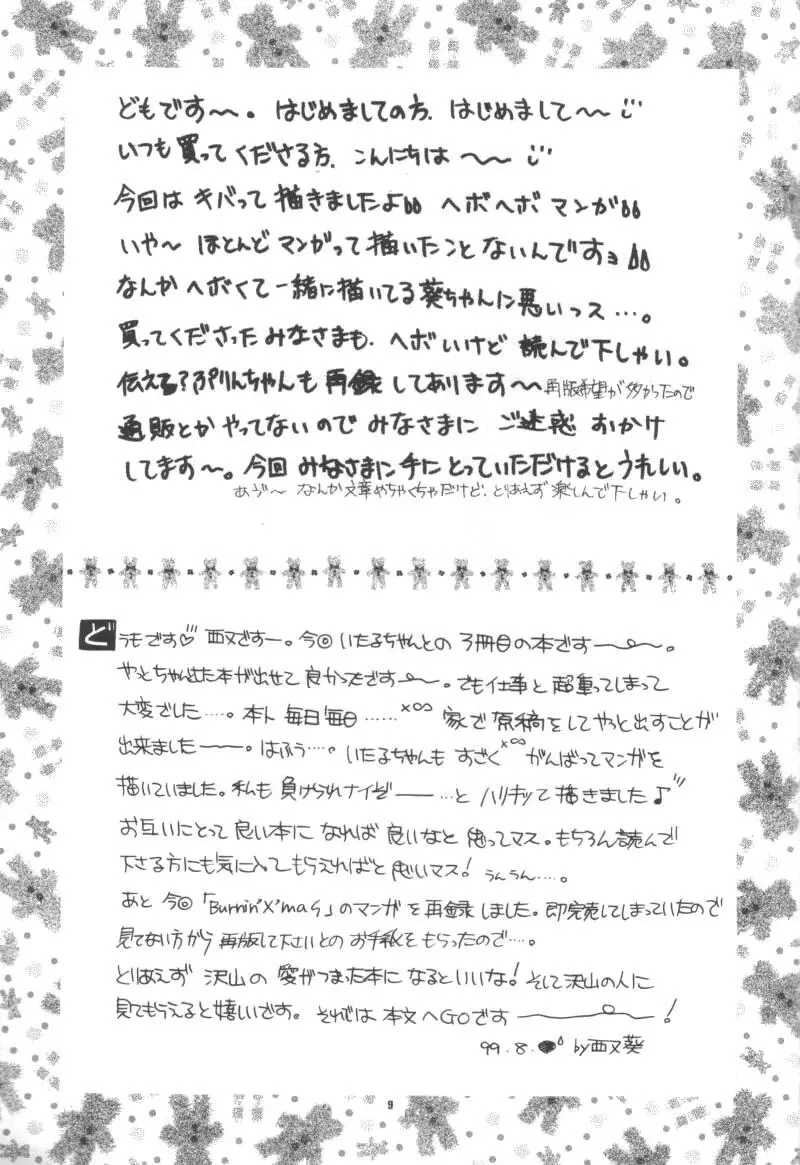 どもです〜。はじめましての方、はじめまして〜〜
いつも買ってくださる方、こんにちは〜〜
今回はキバって描きましたよ ヘボヘボマンガ
いや〜ほとんどマンガって描いたことないんですョ
なんかヘボくて一緒に描いてる葵ちゃんに悪いっス…。
買ってくださったみなさまも、ヘボいけど読んで下しゃい。
伝える?ぷりんちゃんも再録してあります〜再版希望が多かったので
通販とかやってないのでみなさまにご迷惑おかけ
してます〜。今回みなさまに手にとっていただけるとうれしい。
あぅ〜なんか文章めちゃくちゃだけど、とりあえず楽しんで下しゃい。
どうもです♡ 西又ですー。今回いたるちゃんとの3冊目の本ですー。
やっとちゃんと出た本が出せて良かったですー。でも仕事と超重ってしまって
大変でした…。本ト毎日毎日……×∞ 家で原稿をしてやっと出すことが
出来ましたー。はふぅ…。いたるちゃんもすごく×∞がんばってマンガを
描いていました。私も負けられナイぞー…とハリキッて描きました♪
お互いにとって良い本になれば良いなと思ってマス。もちろん読んで
下さる方にも気に入ってもらえればと思いマス! うんうん…。
あと今回「Burnin'X'mas」のマンガを再録しました。即完売してしまっていたので
見てない方から再版して下さいとのお手紙をもらったので…。
とりあえず沢山の愛がつまった本になるといいな! そして沢山の人に
見てもらえると嬉しいです。それでは本文へGOですー!
99.8. by西又葵
9